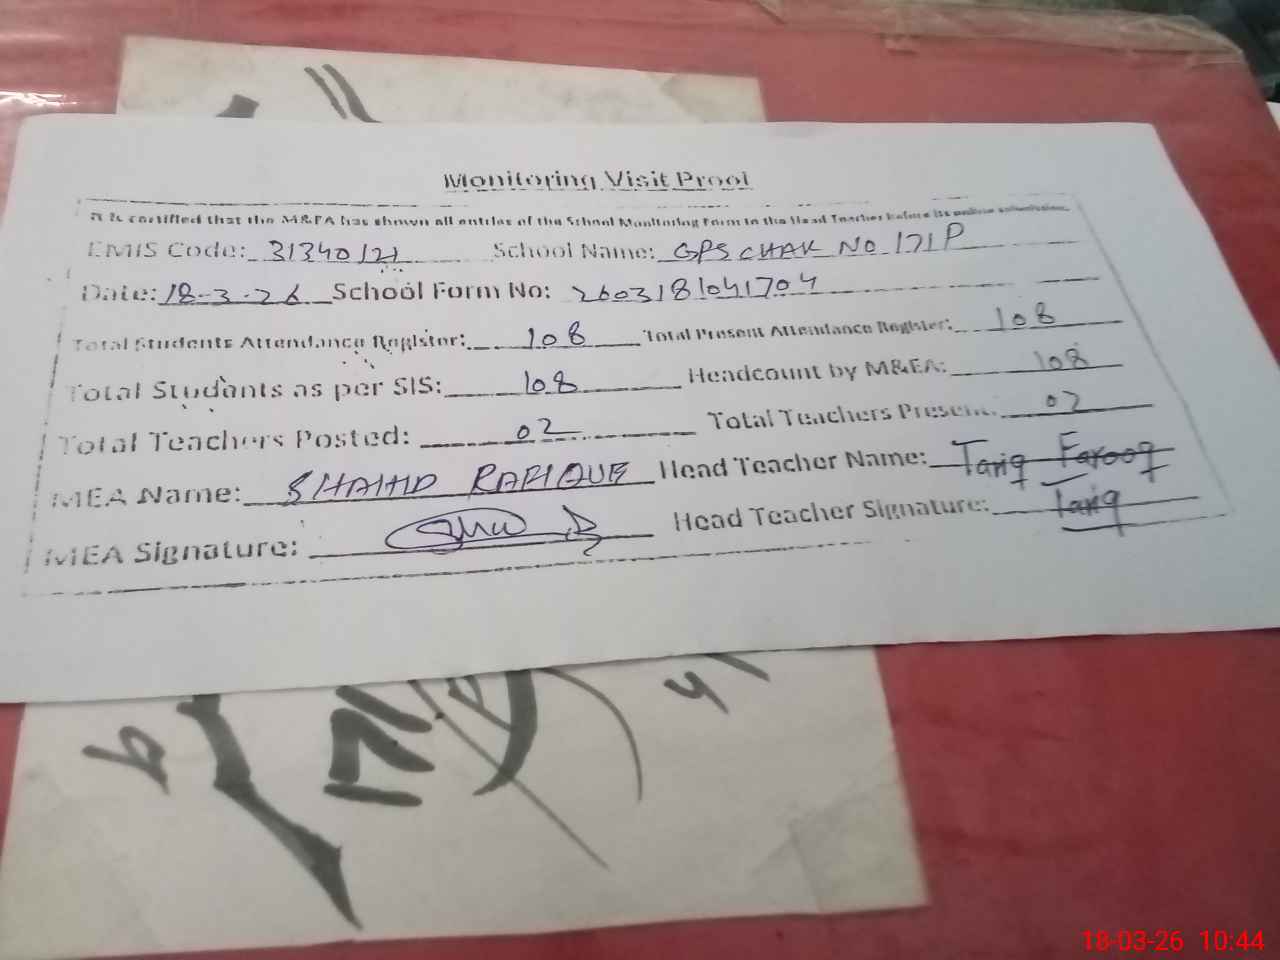 Monitoring Visit Proof
It is certified that the M&EA has shown all entries of the School Monitoring Form to the Head Teacher before its online submission.
EMIS Code: 31340121 School Name: GPS CHAK NO 171P
Date: 18-3-26 School Form No: 2603181041704
Total Students Attendance Register: 108 Total Present Attendance Register: 108
Total Students as per SIS: 108 Headcount by M&EA: 108
Total Teachers Posted: 02 Total Teachers Present: 02
MEA Name: SHAHID RAFIQUE Head Teacher Name: Tariq Farooq
MEA Signature: Head Teacher Signature: Tariq
18-03-26 10:44